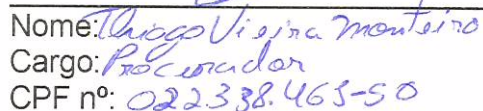 Nome: Thiago Vieira Monteiro
Cargo: Procurador
CPF nº: 022338.463-50